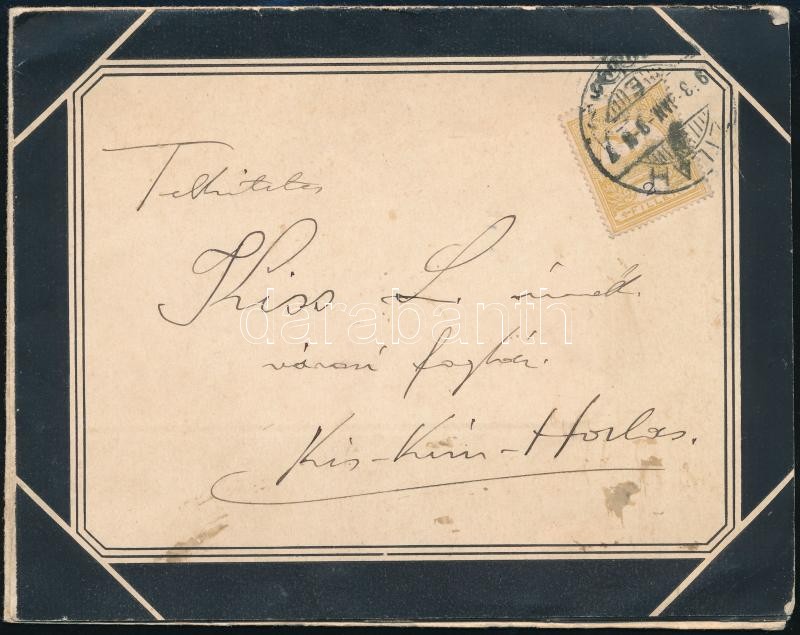 Tekintetes
Kiss L. úrnak
városi foghár.
Kis-Kún-Halas.
FILLÉR
darabanth